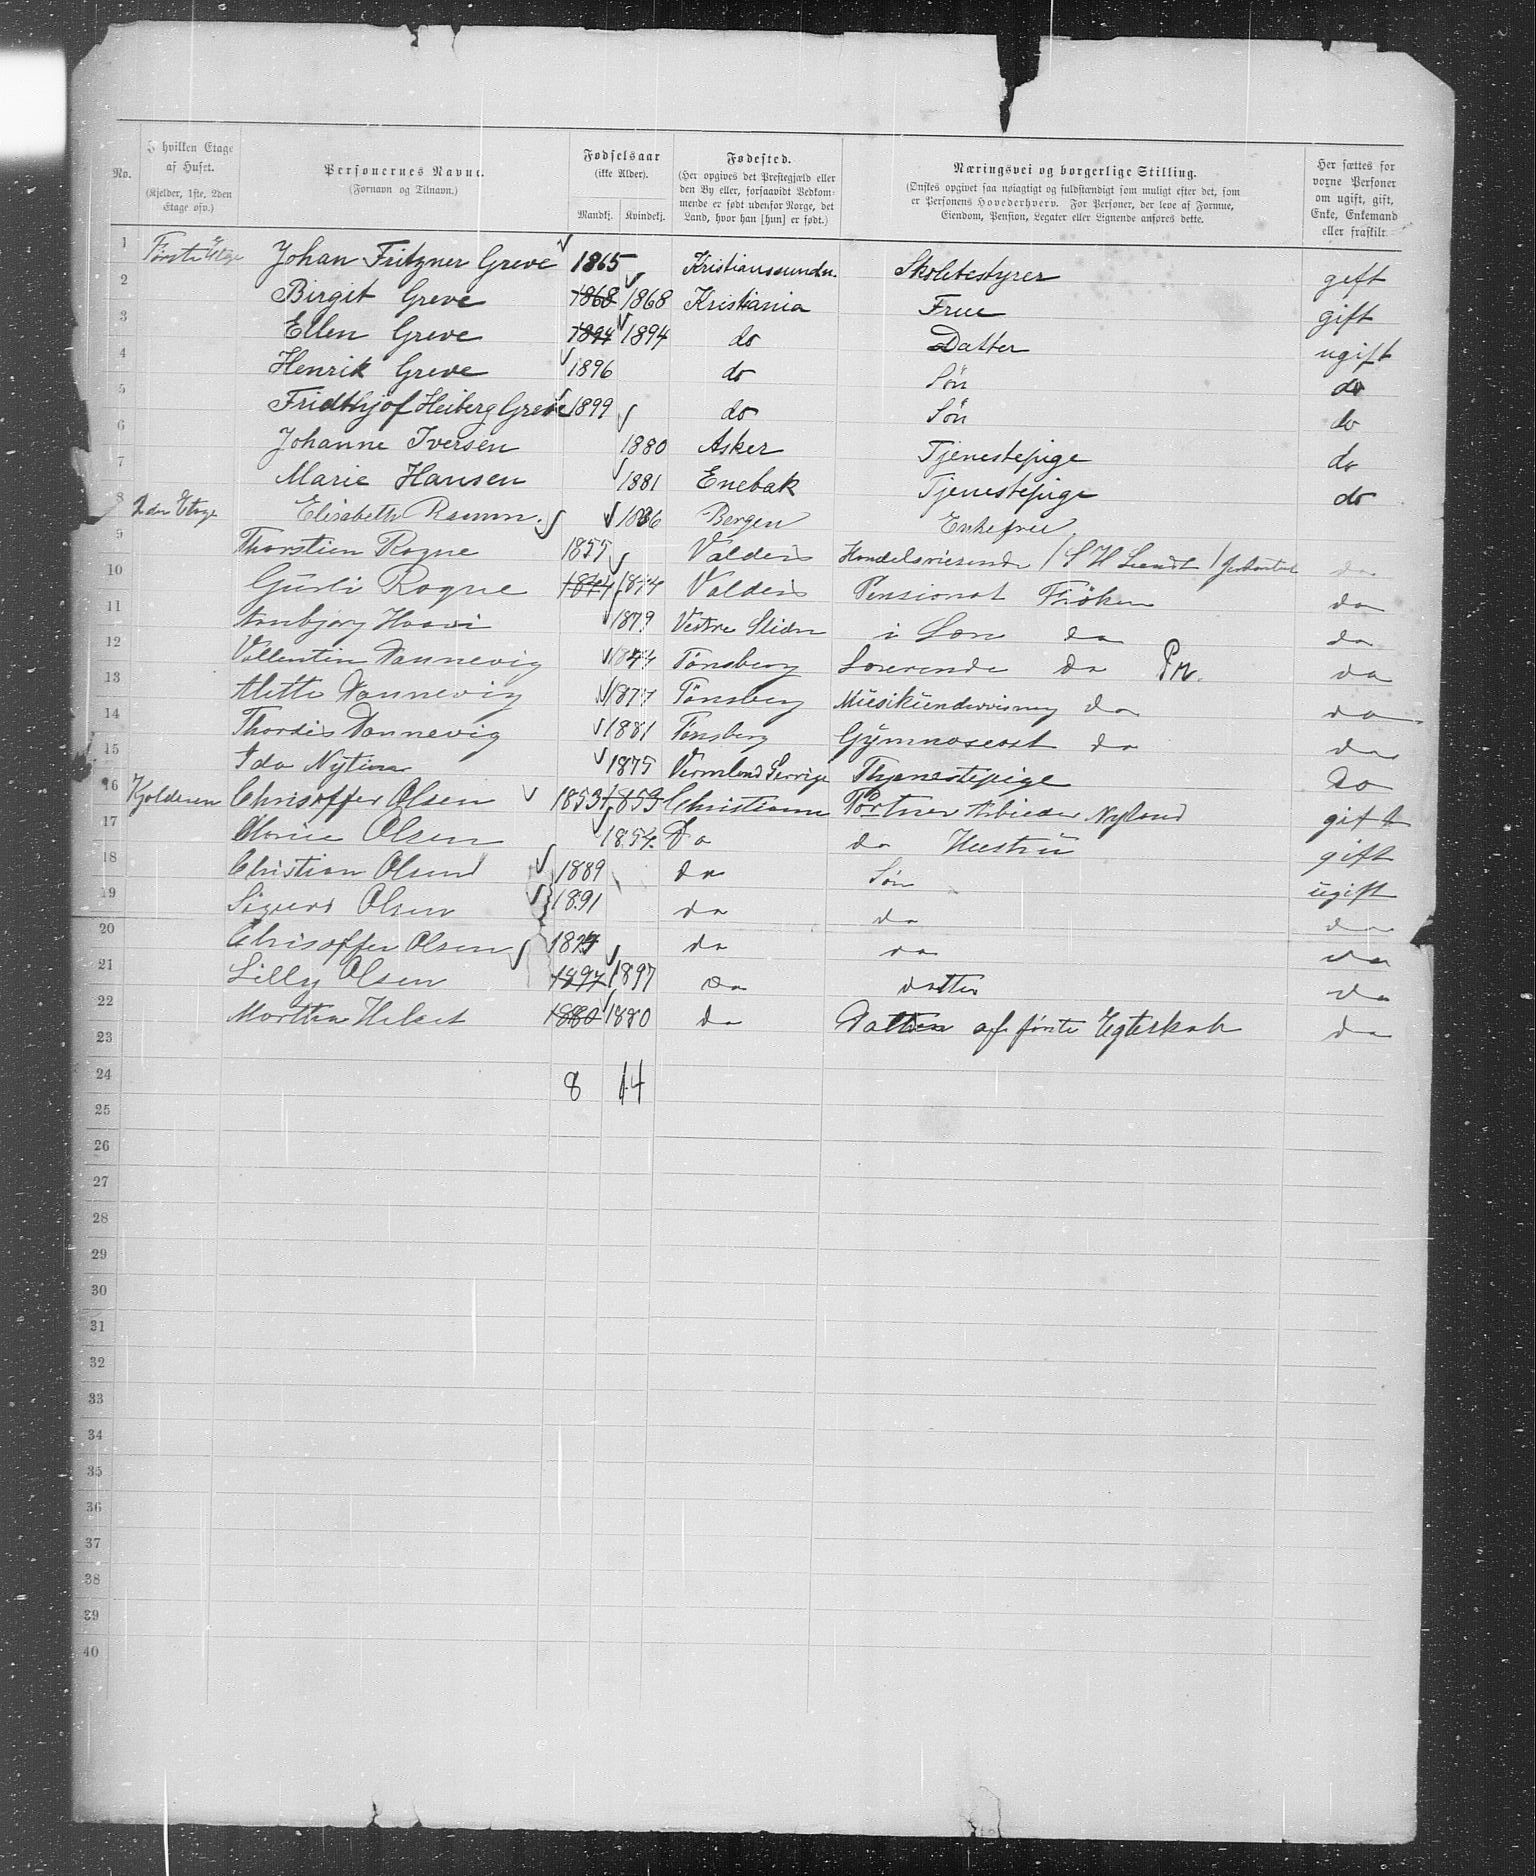 No.
I hvilken Etage af Huset. (Kjelder, 1ste, 2den Etage osv.)
Personernes Navne. (Fornavn og Tilnavn.)
Fødselsaar (ikke Alder). Mandkj. Kvindekj.
Fødested. (Her opgives det Prestegjæld eller den By eller, forsaavidt Vedkommende er født udenfor Norge, det Land, hvor han [hun] er født.)
Næringsvei og borgerlige Stilling. (Ønskes opgivet saa nøiagtigt og fuldstændigt som muligt efter det, som er Personens Hovederhverv. For Personer, der leve af Formue, Eiendom, Pension, Legater eller Lignende anføres dette.
Her sættes for vorne Personer om ugift, gift, Enke, Enkemand eller fraskilt.
1 Første Etage Johan Fritzner Greve 1865 Kristianssund n. Skolebestyrer gift
2 Birgit Greve 1868 1868 Kristiania Frue gift
3 Ellen Greve 1894 1894 do Datter ugift
4 Henrik Greve 1896 do Søn do
5 Fridthjof Heiberg Greve 1899 do Søn do
6 Johanne Iversen 1880 Asker Tjenestepige do
7 Marie Hansen 1881 Enebak Tjenestepige do
8 2den Etage Elisabeth Ramm. 1836 Bergen Enkefrue
9 Thorstein Rogne 1855 Valders Handelsreisende / S H Lundt / do
10 Gurli Rogne 1874 1874 Valders Pensionat Frøken do
11 Arnbjørg Haavi 1879 Vestre Slidre i Læn do do
12 Vallentin Vannevig 1844 Tønsberg Lærerende do Pn. do
13 Mette Vannevig 1877 Tønsberg Musikundervisning do do
14 Thordis Vannevig 1881 Tønsberg Gymnaseast do do
15 Ida 1875 Vermland Sverrige Thjenestepige do
16 Kjelderen Chrisoffer Olsen 1853 1853 Christiania Portner Arbieder Nyland gift
17 Marie Olsen 1854. Do do Hustru gift
18 Christian Olsen 1889 do Søn ugift
19 Sigurd Olsen 1891 do do do
20 Chrisoffer Olsen do do do
21 Lilly Olsen 1897 1897 do datter do
22 Martha Helset 1880 1880 do Datter af første Egteskab do
23
24 8 14
25
26
27
28
29
30
31
32
33
34
35
36
37
38
39
40